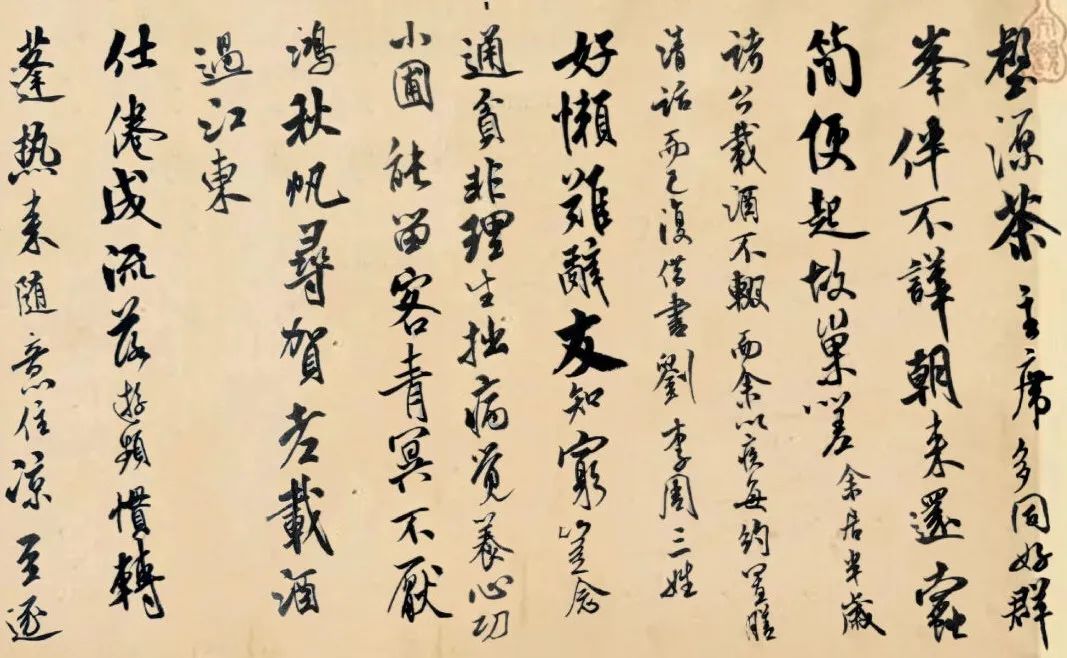 壑源茶主席多同好群
峯伴不譁朝来還蠹
簡便起故巢嗟余居半歲
諸公載酒不輟而余以疾每約置膳
清話而已復借書劉李周三姓
好懶難辭友知窮豈念
通貧非理生拙病覺養心功
小圃能留客青冥不厭
鴻秋帆尋賀老載酒
過江東
仕倦成流落游頻慣轉
蓬熱来隨意住凉至逐